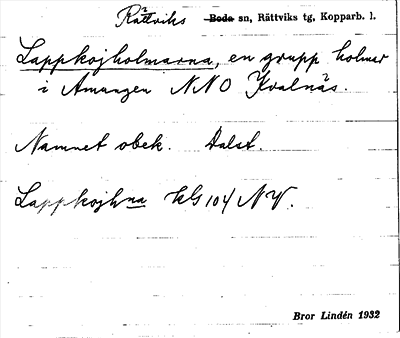 Rättviks Boda sn, Rättviks tg, Kopparb. l.
Lappkojholmarna, en grupp holmar
i Amungen NNO Kvalnäs.
Namnet obek. Dalst.
Lappkojhna kG 104 NV.
Bror Lindén 1932